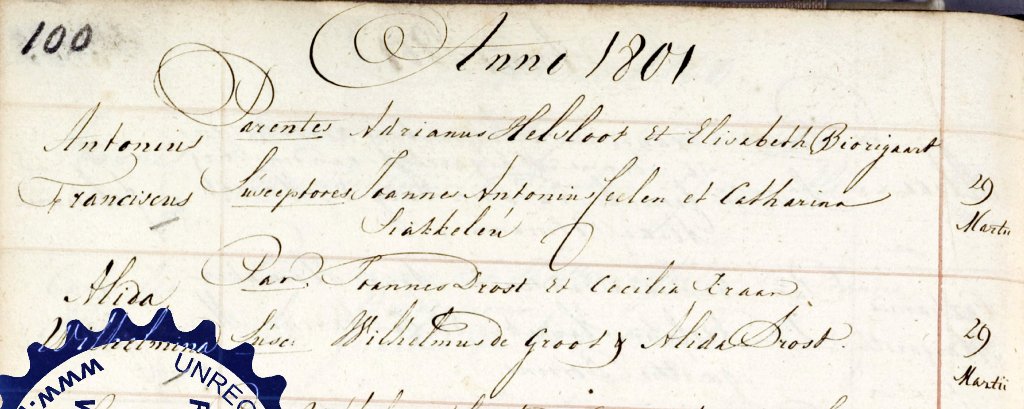 100
Anno 1801
Antonius Parentes Adrianus Helsloot et Elisabeth Biorigaart
Franciscus Susceptores Joannes Antonius Ceelen et Catharina 29 Martii
Siakkelén
Alida Par. Joannes Drost et Cecilia Kraan
Wilhelmina Susc. Wilhelmus de Groot & Alida Drost. 29 Martii
UNREG
www.